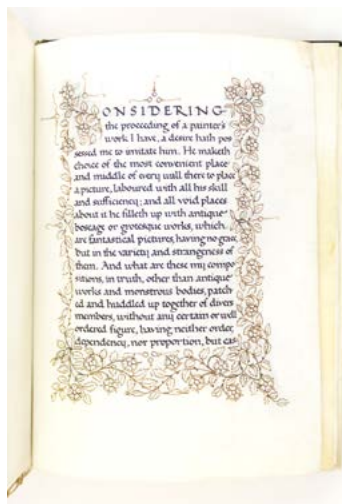 ONSIDERING
the proceeding of a painter's
work I have, a desire hath pos
sessed me to imitate him. He maketh
choice of the most convenient place
and middle of every wall there to place
a picture, laboured with all his skill
and sufficiency; and all void places
about it he filleth up with antique
boscage or grotesque works, which
are fantastical pictures, having no grace,
but in the variety and strangeness of
them. And what are these my compo
sitions, in truth, other than antique
works and monstrous bodies, patch
ed and huddled up together of divers
members, without any certain or well
ordered figure, having neither order,
dependency, nor proportion, but cas